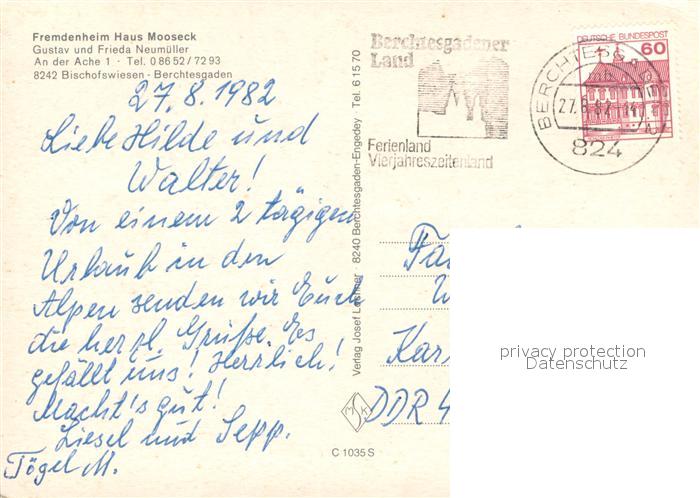 Fremdenheim Haus Mooseck
Gustav und Frieda Neumüller
An der Ache 1 · Tel. 0 86 52 / 72 93
8242 Bischofswiesen - Berchtesgaden
27.8.1982
Liebe Hilde und
Walter!
Von einem 2 tägigen
Urlaub in den
Alpen senden wir Euch
die herzl. Grüße. Es
gefällt uns! Herrlich!
Macht's gut!
Liesel und Sepp.
Tögel M.
Verlag Josef 8240 Berchtesgaden-Engedey Tel. 6 15 70
C 1035 S
Berchtesgadener
Land
Ferienland
Vierjahreszeitenland
DEUTSCHE BUNDESPOST
60
27.8.82
824
DDR 4
privacy protection
Datenschutz